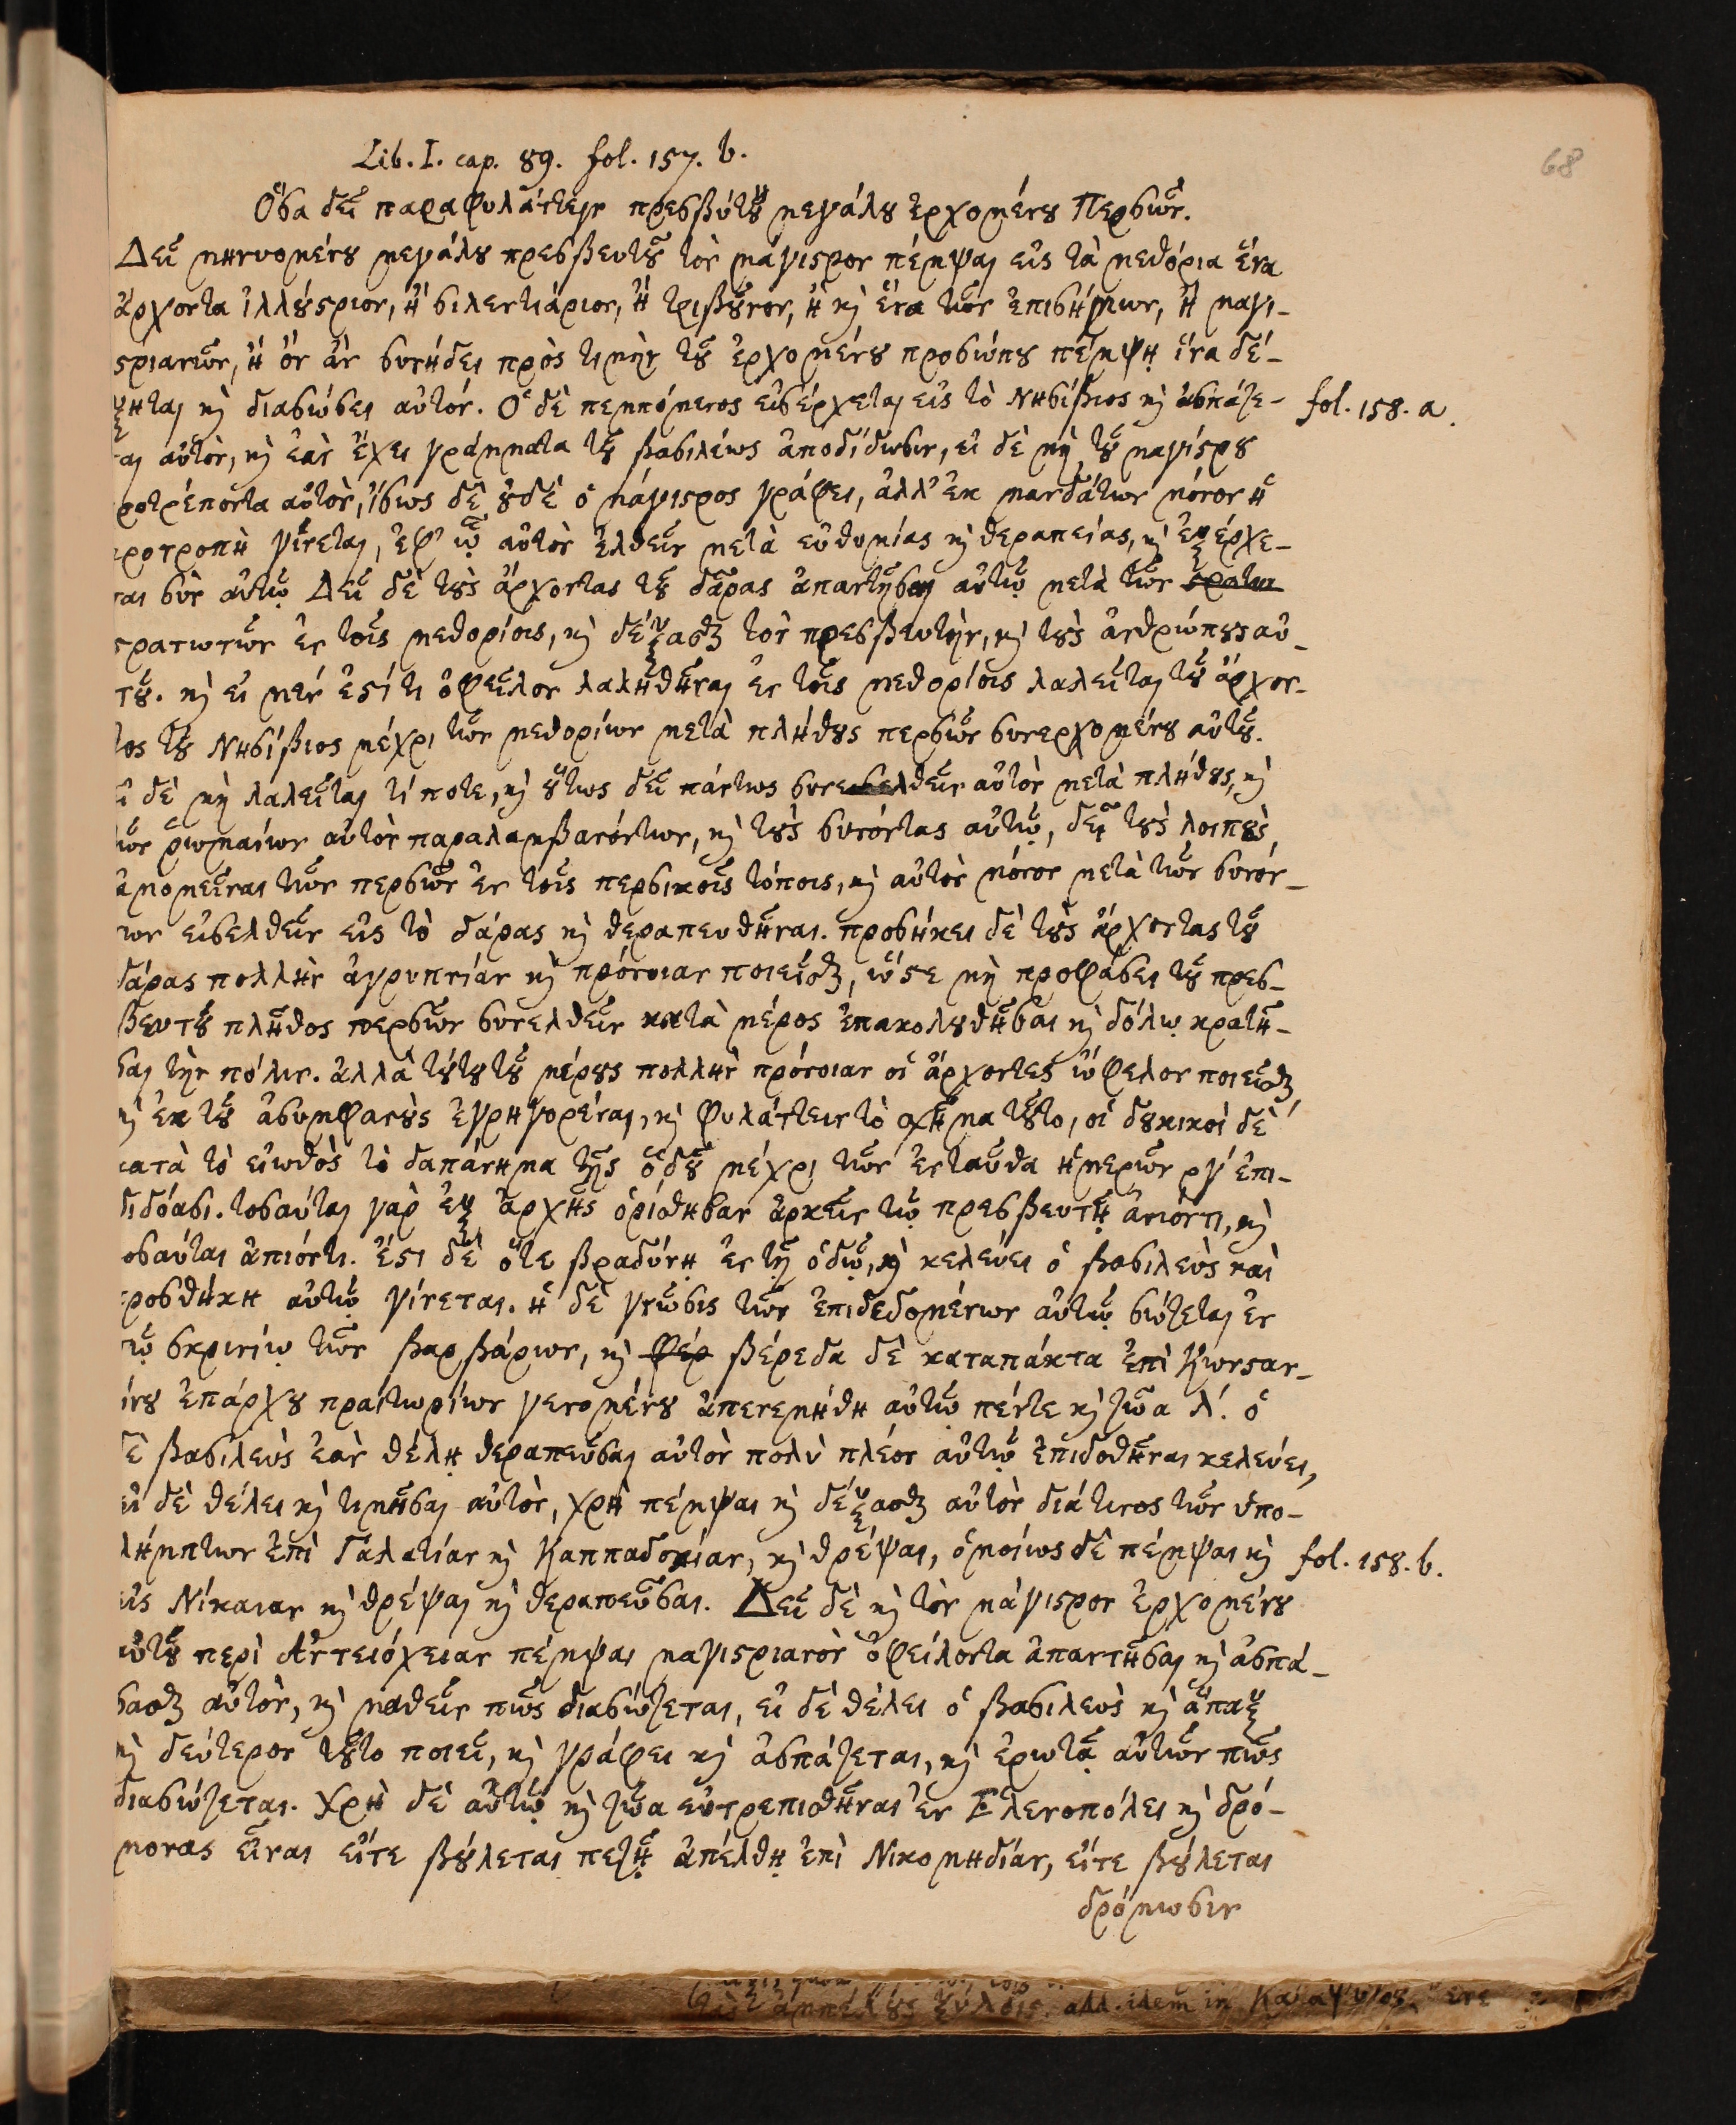 68
Lib. I. cap. 89. fol. 157. b.
Ὅσα δεῖ παραφυλάττειν πρεσβύτου μεγάλου ἐρχομένου Περσῶν.
Δεῖ μηνυομένου μεγάλου πρεσβευτοῦ τὸν μάγιστρον πέμψαι εἰς τὰ μεθόρια ἕνα
ἄρχοντα ἰλλούστριον, ἢ σιλεντιάριον, ἢ τριβοῦνον, ἢ καὶ ἕνα τῶν ἐπισήμων, ἢ μαγι-
στριανῶν, ἢ ὃν ἂν συνήδει πρὸς τιμὴν τοῦ ἐρχομένου προσώπου πέμψῃ ἵνα δέ-
ξηται καὶ διασώσει αὐτόν. Ὁ δὲ πεμπόμενος εἰσέρχεται εἰς τὸ Νησίβιος καὶ ἀσπάζε- fol. 158. a.
ται αὐτὸν, καὶ ἐὰν ἔχει γράμματα τοῦ βασιλέως ἀποδίδωσιν, εἰ δὲ μὴ τοῦ μαγίστρου
ροτρέποντα αὐτὸν, ἴσως δὲ οὐδὲ ὁ μάγιστρος γράφει, ἀλλ' ἐκ μανδάτων μόνον ἡ
προτροπὴ γίνεται, ἐφ' ᾧ αὐτὸν ἐλθεῖν μετὰ εὐθυμίας καὶ θεραπείας, καὶ ἐξέρχε-
ται σὺν αὐτῷ Δεῖ δὲ τοὺς ἄρχοντας τοῦ δάρας ἀπαντῆσαι αὐτῷ μετὰ τῶν στρατιω
στρατιωτῶν ἐν τοῖς μεθορίοις, καὶ δέξασθαι τὸν πρεσβευτὴν, καὶ τοὺς ἀνθρώπους αὐ-
τοῦ. καὶ εἰ μέν ἐστί τι ὀφεῖλον λαληθῆναι ἐν τοῖς μεθορίοις λαλεῖται τοῦ ἄρχον-
τος τοῦ Νησίβιος μέχρι τῶν μεθορίων μετὰ πλήθους περσῶν συνερχομένου αὐτοῦ.
εἰ δὲ μὴ λαλεῖται τί ποτε, καὶ οὕτως δεῖ πάντως συνεισελθεῖν αὐτὸν μετὰ πλήθους, καὶ
τῶν ῥωμαίων αὐτὸν παραλαμβανόντων, καὶ τοὺς συνόντας αὐτῷ, δεῖ τοὺς λοιποὺς
ἀπομεῖναι τῶν περσῶν ἐν τοῖς περσικοῖς τόποις, καὶ αὐτὸν μόνον μετὰ τῶν συνόν-
των εἰσελθεῖν εἰς τὸ δάρας καὶ θεραπευθῆναι. προσήκει δὲ τοὺς ἄρχοντας τοῦ
δάρας πολλὴν ἀγρυπνίαν καὶ πρόνοιαν ποιεῖσθαι, ὥστε μὴ προφάσει τοῦ πρεσ-
βευτοῦ πλῆθος περσῶν συνελθεῖν κατὰ μέρος ἐπακολουθῆσαι καὶ δόλῳ κρατῆ-
σαι τὴν πόλιν. ἀλλὰ τούτου τοῦ μέρους πολλὴν πρόνοιαν οἱ ἄρχοντες ὤφελον ποιεῖσθαι
καὶ ἐκ τοῦ ἀσυμφανοὺς ἐγρηγορέναι, καὶ φυλάττειν τὸ σχῆμα τοῦτο, οἱ δουκικοὶ δὲ
κατὰ τὸ εἰωθὸς τὸ δαπάνημα τῆς ὁδοῦ μέχρι τῶν ἐνταῦθα ἡμερῶν ργ´ ἐπι-
διδόασι. τοσαύται γὰρ ἐξ ἀρχῆς ὁρίσθησαν ἀρκεῖν τῷ πρεσβευτῇ ἀνιόντι, καὶ
οσαύται ἀπιόντι. ἔστι δὲ ὅτε βραδύνῃ ἐν τῇ ὁδῷ, καὶ κελεύει ὁ βασιλεὺς καὶ
προσθήκη αὐτῷ γίνεται. ἡ δὲ γνῶσις τῶν ἐπιδεδομένων αὐτῷ σώζεται ἐν
τῷ σκρινίῳ τῶν βαρβάρων, καὶ φέρ βέρεδα δὲ καταπάκτα ἐπὶ Κωνσταν-
ίνου ἐπάρχου πραιτωρίων γενομένου ἀπενεμήθη αὐτῷ πέντε καὶ ζῶα λ´. ὁ
δὲ βασιλεὺς ἐὰν θέλῃ θεραπεῦσαι αὐτὸν πολὺ πλέον αὐτῷ ἐπιδοθῆναι κελεύει,
εἰ δὲ θέλει καὶ τιμῆσαι αὐτὸν, χρὴ πέμψαι καὶ δέξασθαι αὐτὸν διά τινος τῶν ὑπο-
λήμπτων ἐπὶ Γαλατίαν καὶ Καππαδοκίαν, καὶ θρέψαι, ὁμοίως δὲ πέμψαι καὶ fol. 158. b.
εἰς Νίκαιαν καὶ θρέψαι καὶ θεραπεῦσαι. Δεῖ δὲ καὶ τὸν μάγιστρον ἐρχομένου
αὐτοῦ περὶ Ἀντειόχειαν πέμψαι μαγιστριανὸν ὀφείλοντα ἀπαντῆσαι καὶ ἀσπά-
σασθαι αὐτὸν, καὶ μαθεῖν πῶς διασώζεται, εἰ δὲ θέλει ὁ βασιλεὺς καὶ ἅπαξ
καὶ δεύτερον τοῦτο ποιεῖ, καὶ γράφει καὶ ἀσπάζεται, καὶ ἐρωτᾷ αὐτῶν πῶς
διασώζεται. Χρὴ δὲ αὐτῷ καὶ ζῶα εὐτρεπισθῆναι ἐν Ἑλενοπόλει καὶ δρό-
μονας εἶναι εἴτε βούλεται πεζῇ ἀπέλθῃ ἐπὶ Νικομηδίαν, εἴτε βούλεται
δρόμωσιν
ἀμπέλους ξύλοις. add. idem in